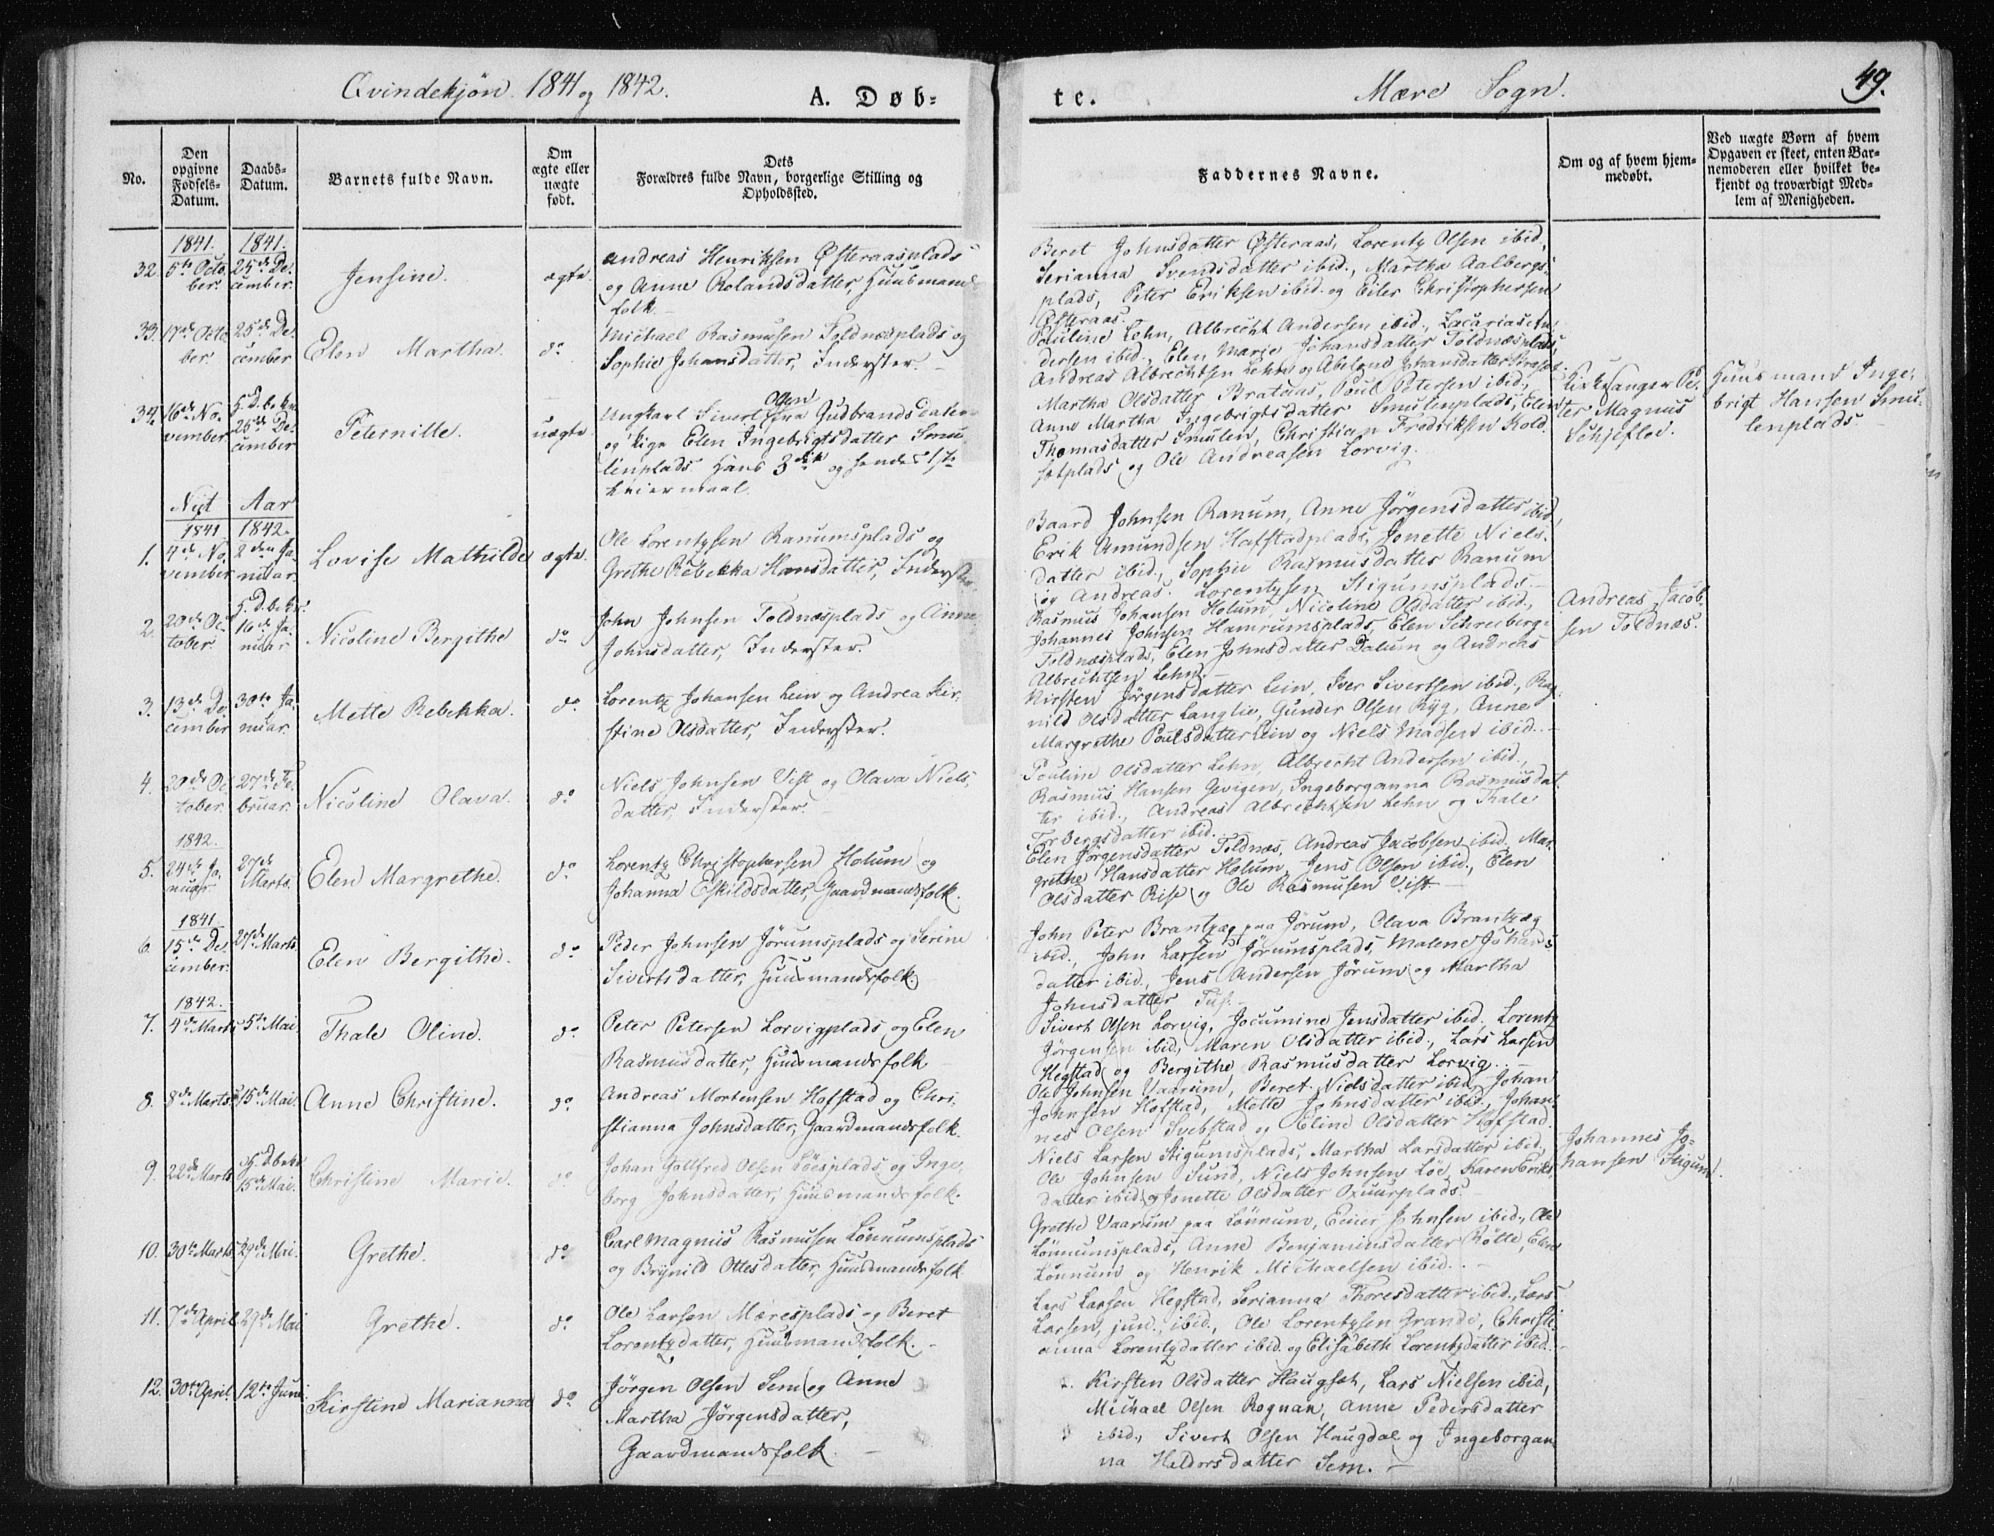 Qvindekjøn 1841 og 1842.
A. Døb-
te.
Mære Sogn.
49.
No.
Den opgivne Fødsels-Datum.
Daabs-Datum.
Barnets fulde Navn.
Om ægte eller uægte født.
Dets Forældres fulde Navn, borgerlige Stilling og Opholdssted.
Faddernes Navne.
Om og af hvem hjem-medøbt.
Ved uægte Børn af hvem Opgaven er skeet, enten Bar-nemoderen eller hvilket be-kjendt og troværdigt Med-lem af Menigheden.
1841. 1841.
32. 5te Octo- 25de De- Jensine. ægte. Andreas Henriksen Østeraasplads
ber. cember. og Anne Rolandsdatter, Huusmands
folk.
Beret Johnsdatter Østeraas, Lorentz Olsen ibid,
Serianna Svendsdatter ibid., Martha Aalbergs-
plads, Peter Eriksen ibid. og Eiler Christophersen
Østeraas.
33. 17de Octo- 25de De- Elen Martha. do Michael Rasmusen Toldnæsplads og
ber. cember Sophie Johansdatter, Inderster.
Pauline Lehn, Albrecht Andersen ibid., Zacarias An-
dersen ibid., Elen Marie Johansdatter Toldnæsplads,
Andreas Albrechtsen Lehn og Abelone Johansdatter
34. 16de No- S. D. b. Kr. 26de De- Peternille. uægte Ungkarl Sivert Olsen fra Gudbrandsdalen
vember cember og Pige Elen Ingebrigtsdatter Smu-
lenplads Hans 3die og hendes 1ste
Leiermaal.
Martha Olsdatter Brataas, Poul Petersen ibid.,
Anne Martha Ingebrigtsdatter Smulenplads, Elen
Thomasdatter Smulen, Christian Fredriksen Rold-
setplads og Ole Andreasen Lorvig.
Kirkesanger Pe-
ter Magnus
Schjefloe.
Huusmand Inge-
brigt Hansen Smu-
lenplads.
Nyt Aar
1841 1842.
1. 4de No- 2den Ja- Lovise Mathilde ægte. Ole Lorentzen Ranumsplads og
vember nuar. Grethe Rebekka Hansdatter, Inderster
Baard Johnsen Ranum, Anne Jørgensdatter ibid,
Erik Amundsen Hafstadplads, Jonette Niels-
datter ibid., Sophie Rasmusdatter Ranum
og Andreas Lorentzen Stigumsplads.
2. 20de Oc- S. D. b. Kr. 16de Ja- Nicoline Bergithe do John Johnsen Toldnæsplads og Anne
tober. nuar Johnsdatter, Inderster.
Rasmus Johansen Holum, Nicoline Olsdatter ibid,
Johannes Johnsen Hamrumsplads, Elen Schreiberg
Toldnæsplads, Elen Johnsdatter Dalum og Andreas
Albrechtsen Lehn.
Andreas Jacob-
sen Toldnæs.
3. 13de De- 30te Ja- Mette Rebekka. do Lorentz Johansen Lein og Andrea Kir-
cember nuar. stine Olsdatter, Inderster.
Kirsten Jørgensdatter Lein, Iver Sivertsen ibid., Rag-
nild Olsdatter Langlie, Gunder Olsen Ryg, Anne
Margrethe Poulsdatter Lein og Niels Madsen ibid.
4. 20de Oc- 27de Fe- Nicoline Olava. do Niels Johnsen Vist og Olava Niels-
tober. bruar. datter, Inderster.
Pouline Olsdatter Lehn, Albrecht Andersen ibid.,
Rasmus Hansen Gevigen, Ingeborganna Rasmusdat-
ter ibid., Andreas Albrechtsen Lehn og Thale
Torbergsdatter ibid.
1842.
5. 24de Ja- 27de Marts. Elen Margrethe. do Lorentz Christophersen Holum og
nuar Johanna Eskildsdatter, Gaardmandsfolk.
Elen Jørgensdatter Toldnæs, Andreas Jacobsen ibid, Mar-
grethe Hansdatter Holum, Jens Olsen ibid., Elen
Olsdatter Rise og Ole Rasmusen Vist.
1841.
6. 15de De- 27de Marts Elen Bergithe. do Peder Johnsen Jørumsplads og Serine
cember. Sivertsdatter, Huusmandsfolk.
John Peter Brantzæg paa Jørum, Olava Brantzæg
ibid., John Larsen Jørumsplads, Malene Johans-
datter ibid., Jens Andersen Jørum og Martha
Johnsdatter Tus.
1842.
7. 4de Marts 5te Mai Thale Oline. do Peter Petersen Lorvigplads og Elen
Rasmusdatter, Huusmandsfolk
Sivert Olsen Lorvig, Jocumine Jensdatter ibid, Lorentz
Jørgensen ibid, Maren Olsdatter ibid., Lars Larsen
Hegstad og Bergithe Rasmusdatter Lorvig.
8. 8de Marts 15de Mai. Anne Christine. do Andreas Mortensen Hofstad og Chri-
stianna Johnsdatter, Gaardmandsfolk.
Ole Johnsen Vaarum, Beret Nielsdatter ibid, Johan
Johnsen Hofstad, Mette Johnsdatter ibid., Johan-
nes Olsen Svebstad og Eline Olsdatter Hofstad.
9. 22de Marts S. D. b. Kr. 15de Mai. Christine Marie. do Johan Gottfred Olsen Løesplads, og Inge-
borg Johnsdatter, Huusmandsfolk.
Niels Larsen Stigumsplads, Martha Larsdatter ibid,
Ole Johnsen Sund, Niels Johnsen Løe, Karen Eriks-
datter ibid og Jonette Olsdatter Oxuurplads.
Johannes Jo-
hansen Stigum.
10. 30te Marts 29de Mai. Grethe. do Carl Magnus Rasmusen Lønnumsplads
og Brynild Ottesdatter, Huusmandsfolk
Grethe Vaarum paa Lønnum, Einer Johnsen ibid., Ole
Lønnumsplads, Anne Benjaminsdatter Rølte, Elen
Lønnum og Henrik Michaelsen ibid.
11. 7de April 29de Mai Grethe. do Ole Larsen Mæresplads og Beret
Lorentzdatter, Huusmandsfolk.
Lars Larsen Hegstad, Serianna Thoresdatter ibid., Lars
Larsen, jun., ibid., Ole Lorentzen Grande, Christi-
anna Lorentzdatter ibid. og Elisabeth Lorentzdatter ibid.
12. 30te April. 12te Juni. Kirstine Marianna do Jørgen Olsen Sem og Anne
Martha Jørgensdatter,
Gaardmandsfolk.
Kirsten Olsdatter Haugset, Lars Nielsen ibid,
Michael Olsen Rognan, Anne Pedersdatter
ibid, Sivert Olsen Haugdal og Ingeborgan-
na Haldorsdatter Sem.